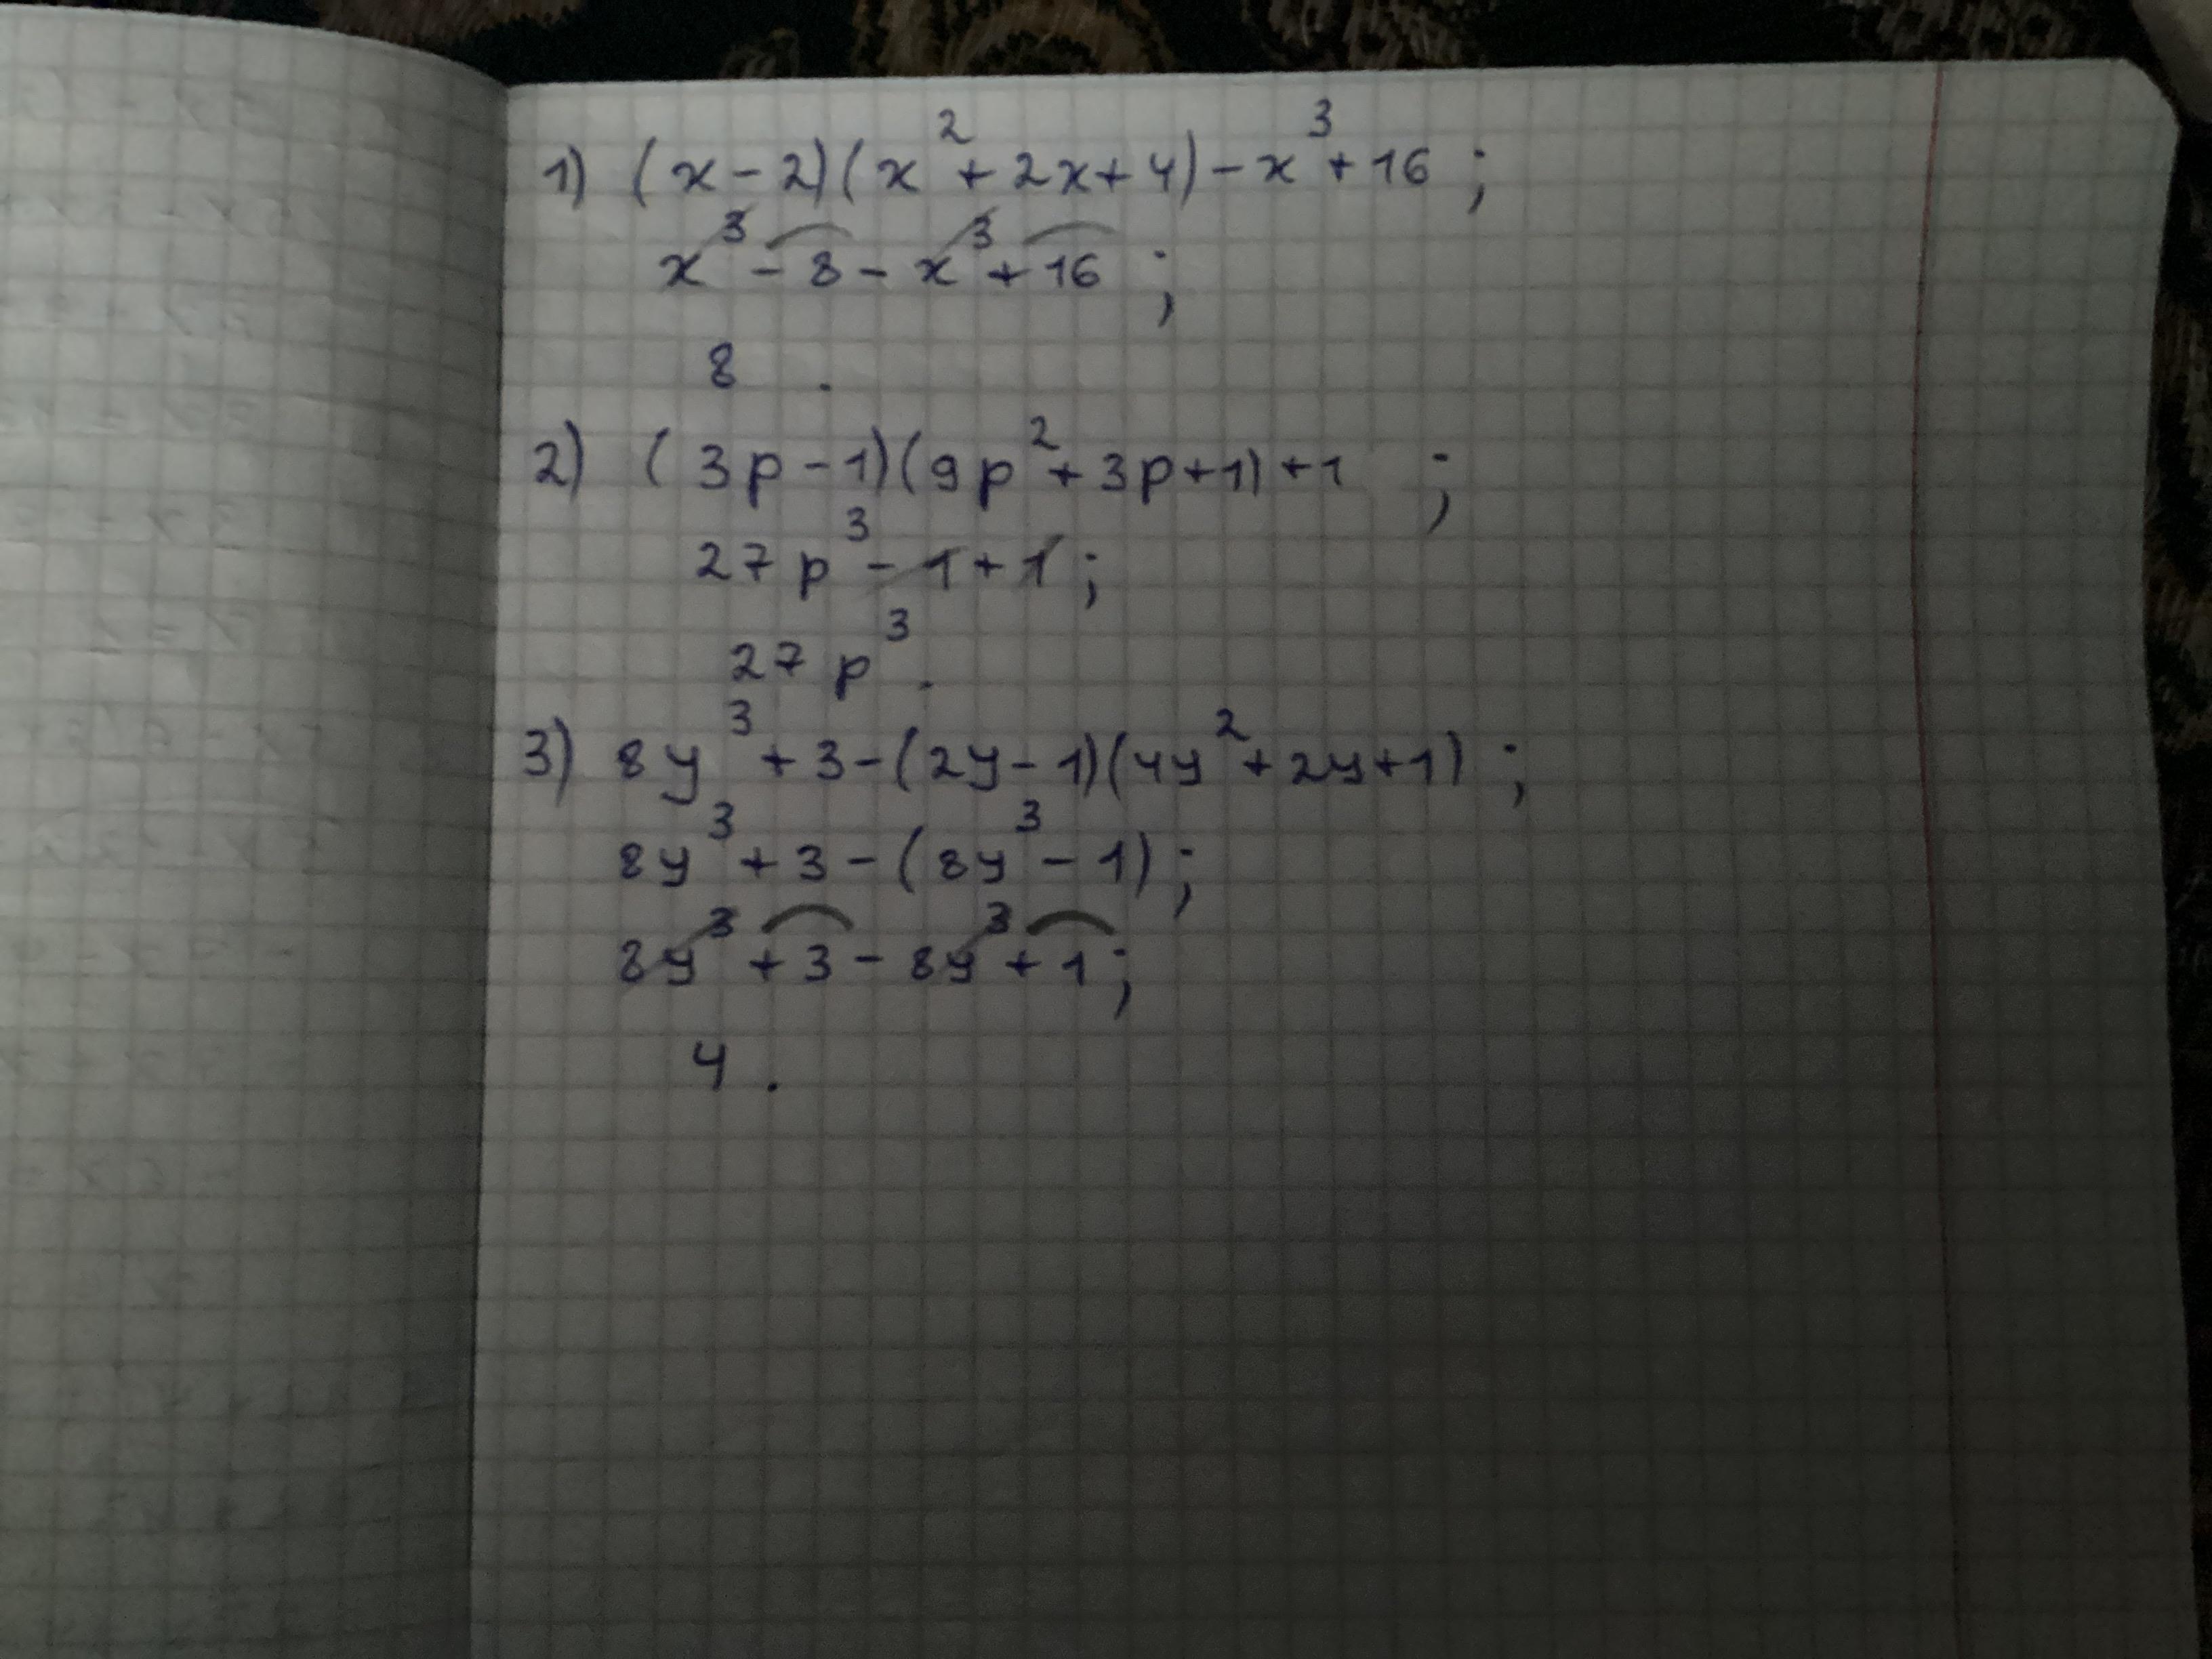 1) (x-2)(x²+2x+4)-x³+16;
x³-8-x³+16;
8.
2) (3p-1)(9p²+3p+1)+1;
27p³-1+1;
27p³.
3) 8y³+3-(2y-1)(4y²+2y+1);
8y³+3-(8y³-1);
8y³+3-8y³+1;
4.